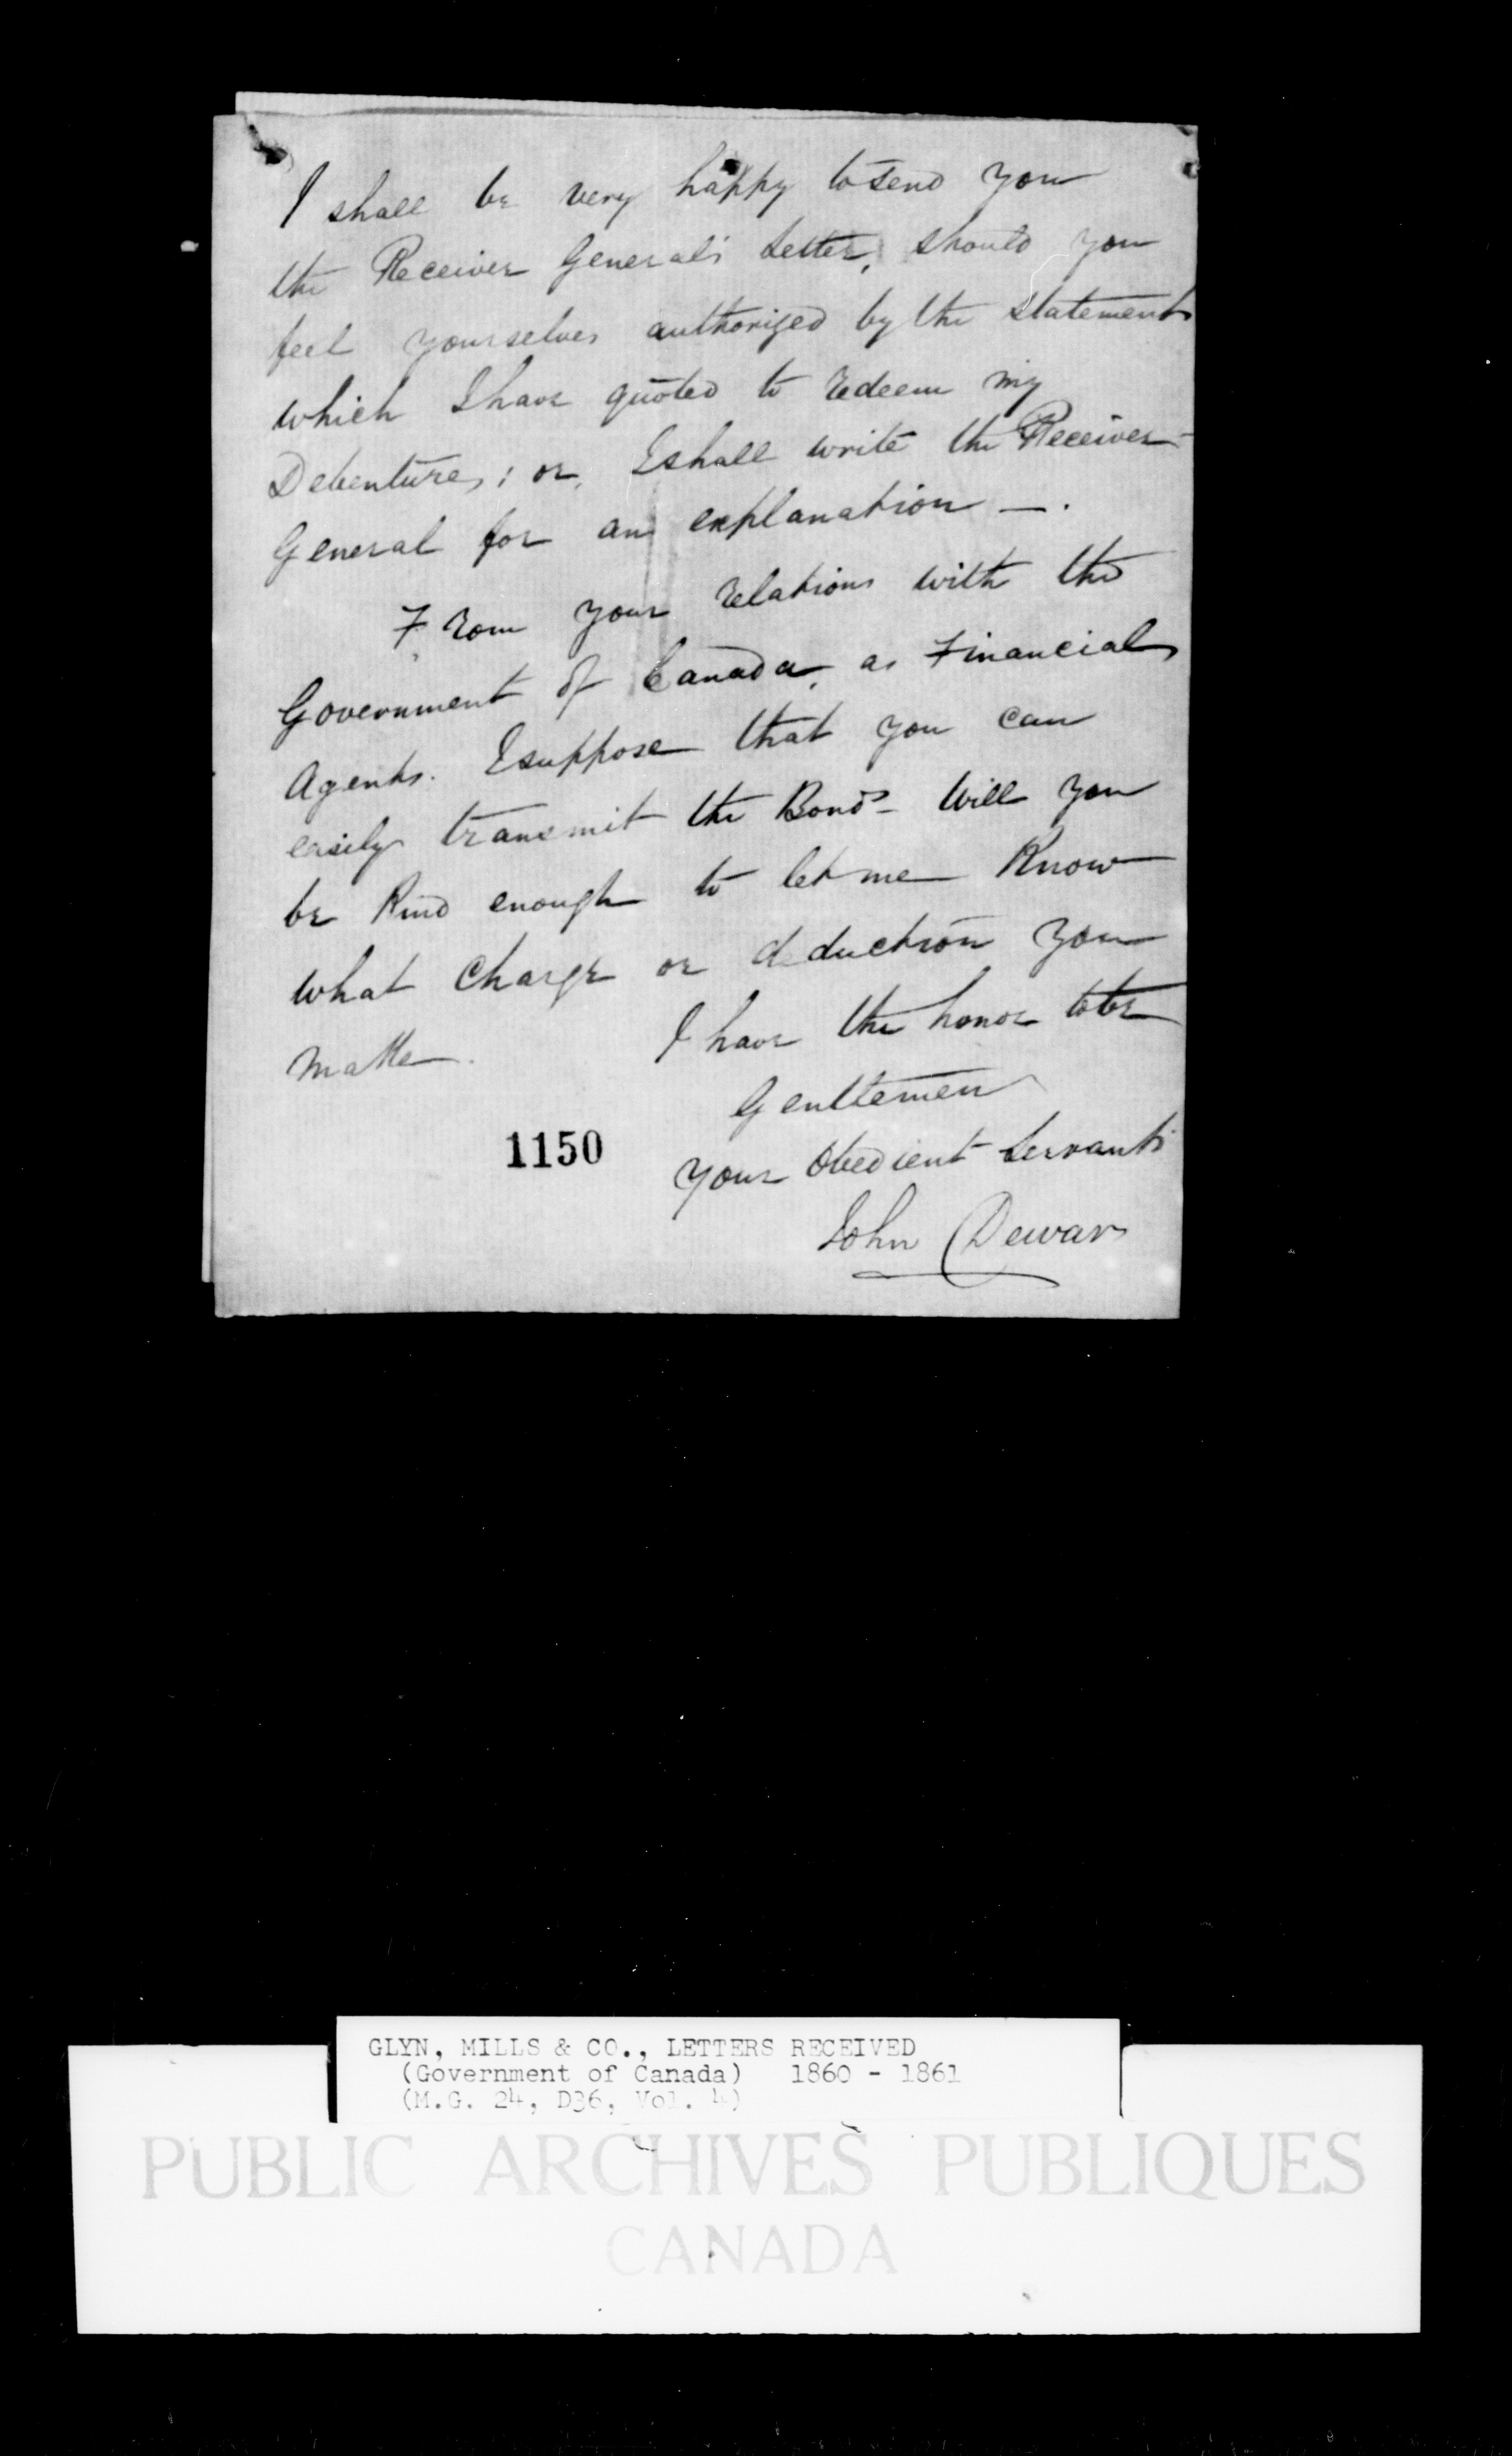 I shall be very happy to send you
the Receiver General's Letter, should you
feel yourselves authorized by the statements
which I have quoted to redeem my
Debentures; or, I shall write the Receiver-
General for an explanation —.
From your relations with the
Government of Canada, as Financial
Agents. I suppose that you can
easily transmit the Bonds – Will you
be Kind enough to let me Know
what charge or deduction you
make.
I have the honor to be
Gentlemen
Your Obedient Servant
John Dewar
1150
GLYN, MILLS & CO., LETTERS RECEIVED
(Government of Canada) 1860 - 1861
(M.G. 24, D36, Vol. 4)
PUBLIC ARCHIVES PUBLIQUES
CANADA